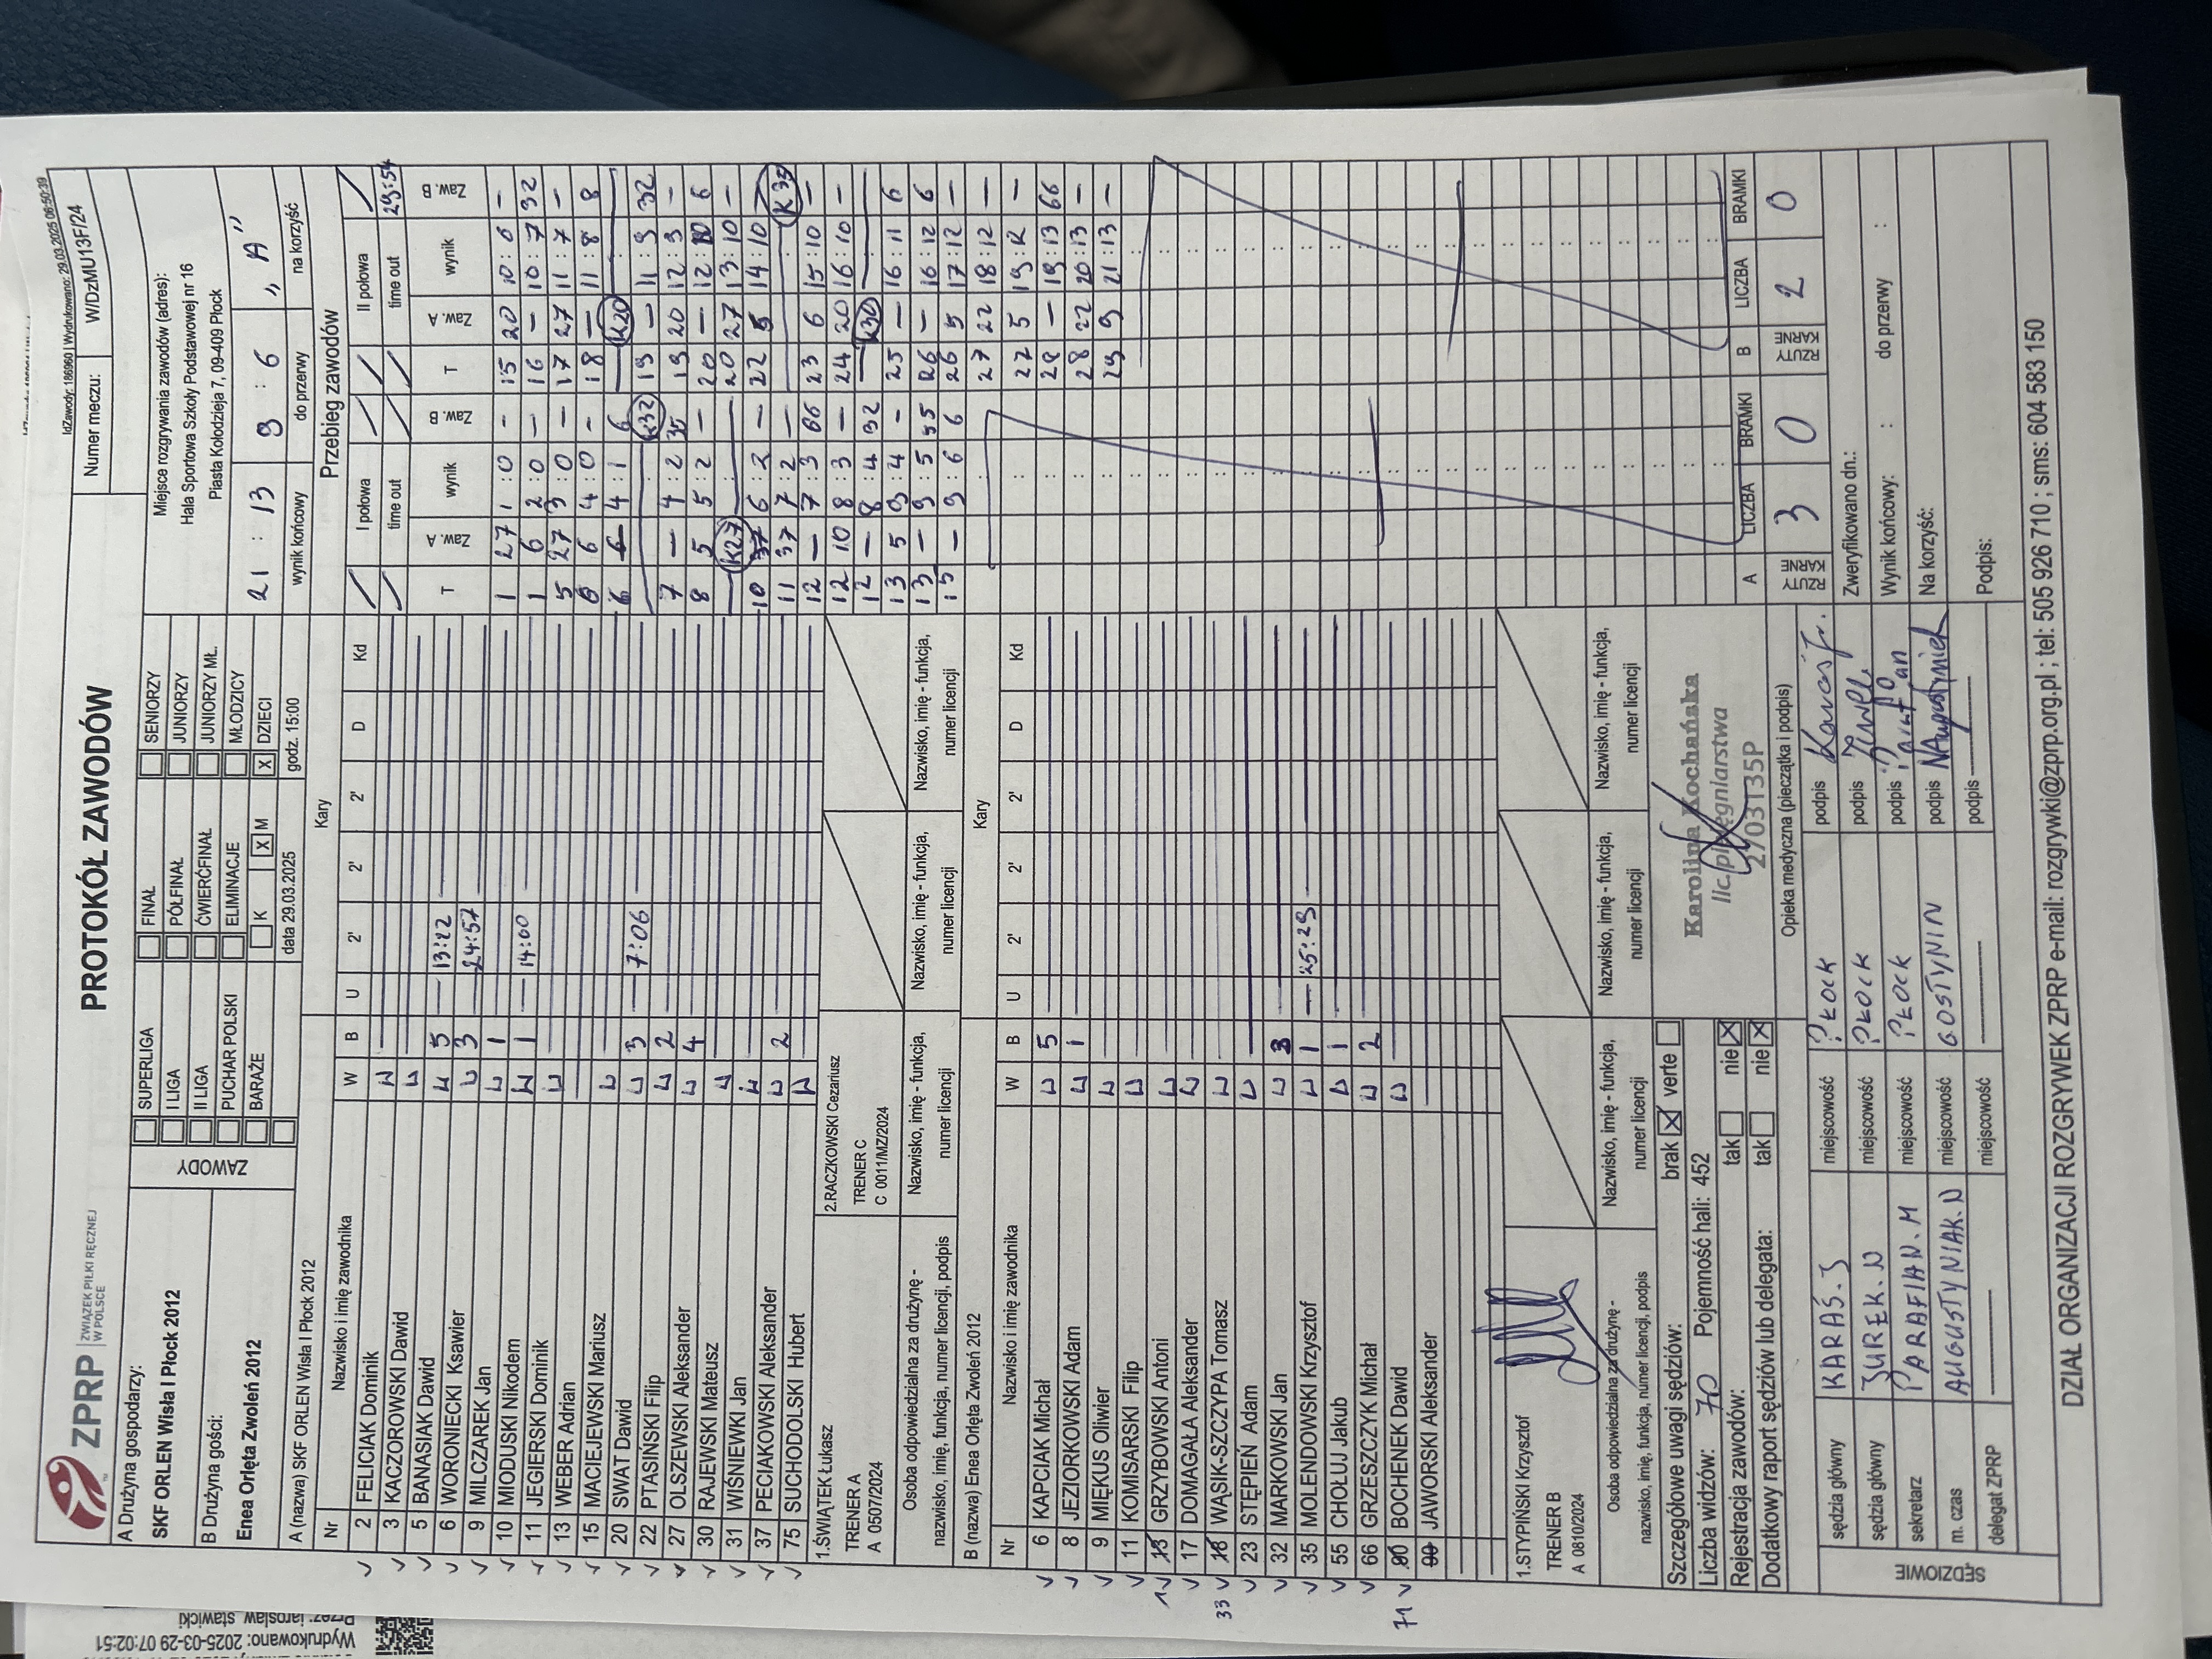 IdZawody: 186960 | Wydrukowano: 29.03.2025 06:50:39
ZPRP ZWIĄZEK PIŁKI RĘCZNEJ W POLSCE
PROTOKÓŁ ZAWODÓW
Numer meczu: W/DzMU13F/24
A Drużyna gospodarzy:
SKF ORLEN Wisła I Płock 2012
B Drużyna gości:
Enea Orlęta Zwoleń 2012
ZAWODY
SUPERLIGA FINAŁ SENIORZY
I LIGA PÓŁFINAŁ JUNIORZY
II LIGA ĆWIERĆFINAŁ JUNIORZY MŁ.
PUCHAR POLSKI ELIMINACJE MŁODZICY
BARAŻE K X M X DZIECI
data 29.03.2025 godz. 15:00
Miejsce rozgrywania zawodów (adres):
Hala Sportowa Szkoły Podstawowej nr 16
Piasta Kołodzieja 7, 09-409 Płock
21 : 13 9 : 6 „A"
wynik końcowy do przerwy na korzyść
A (nazwa) SKF ORLEN Wisła I Płock 2012 Kary
Nr Nazwisko i imię zawodnika W B U 2' 2' 2' D Kd
2 FELICIAK Dominik
3 KACZOROWSKI Dawid
5 BANASIAK Dawid
6 WORONIECKI Ksawier 5 13:22
9 MILCZAREK Jan 3 24:57
10 MIODUSKI Nikodem 1
11 JEGIERSKI Dominik 1 14:00
13 WEBER Adrian
15 MACIEJEWSKI Mariusz
20 SWAT Dawid
22 PTASIŃSKI Filip 3 7:06
27 OLSZEWSKI Aleksander 2
30 RAJEWSKI Mateusz 4
31 WIŚNIEWKI Jan
37 PECIAKOWSKI Aleksander
75 SUCHODOLSKI Hubert 2
1.ŚWIĄTEK Łukasz
TRENER A
A 0507/2024
2.RACZKOWSKI Cezariusz
TRENER C
C 0011/MZ/2024
Osoba odpowiedzialna za drużynę -
nazwisko, imię, funkcja, numer licencji, podpis
Nazwisko, imię - funkcja,
numer licencji
Nazwisko, imię - funkcja,
numer licencji
Nazwisko, imię - funkcja,
numer licencji
B (nazwa) Enea Orlęta Zwoleń 2012 Kary
Nr Nazwisko i imię zawodnika W B U 2' 2' 2' D Kd
6 KAPCIAK Michał 5
8 JEZIORKOWSKI Adam 1
9 MIĘKUS Oliwier
11 KOMISARSKI Filip
13 GRZYBOWSKI Antoni
17 DOMAGAŁA Aleksander
33 18 WĄSIK-SZCZYPA Tomasz
23 STĘPIEŃ Adam
32 MARKOWSKI Jan 3
35 MOLENDOWSKI Krzysztof 1 25:29
55 CHOŁUJ Jakub 1
66 GRZESZCZYK Michał 2
71 BOCHENEK Dawid
JAWORSKI Aleksander
1.STYPIŃSKI Krzysztof
TRENER B
A 0810/2024
Osoba odpowiedzialna za drużynę -
nazwisko, imię, funkcja, numer licencji, podpis
Nazwisko, imię - funkcja,
numer licencji
Nazwisko, imię - funkcja,
numer licencji
Nazwisko, imię - funkcja,
numer licencji
Przebieg zawodów
I połowa II połowa
time out time out 29:54
T Zaw. A wynik Zaw. B T Zaw. A wynik Zaw. B
1 27 1:0 - 15 20 10:6 -
1 6 2:0 - 16 - 10:7 32
5 27 3:0 - 17 27 11:7 -
6 6 4:0 - 18 - 11:8 8
6 4:1 6 K20
K32 19 - 11:9 32
7 - 4:2 35 19 20 12:9 -
8 5 5:2 - 20 - 12:10 6
K27 20 27 13:10 -
10 37 6:2 - 22 5 14:10
11 37 7:2 - K35
12 - 7:3 66 23 6 15:10 -
12 10 8:3 - 24 20 16:10 -
12 - 8:4 32 K30
13 5 9:4 - 25 - 16:11 6
13 - 9:5 55 26 - 16:12 6
15 - 9:6 6 26 5 17:12 -
27 22 18:12 -
27 5 19:12 -
28 - 19:13 66
28 22 20:13 -
29 9 21:13 -
A RZUTY KARNE LICZBA 3 BRAMKI 0
B RZUTY KARNE LICZBA 2 BRAMKI 0
Szczegółowe uwagi sędziów: brak verte
Liczba widzów: 70 Pojemność hali: 452
Rejestracja zawodów: tak nie
Dodatkowy raport sędziów lub delegata: tak nie
Karolina Kochańska
lic. pielęgniarstwa
2703135P
Opieka medyczna (pieczątka i podpis)
SĘDZIOWIE
sędzia główny KARAŚ.J miejscowość PŁOCK podpis
sędzia główny JUREK.N miejscowość PŁOCK podpis
sekretarz PARAFIAN.M miejscowość PŁOCK podpis
m. czas AUGUSTYNIAK.N miejscowość GOSTYNIN podpis NAugustyniak
delegat ZPRP miejscowość podpis
Zweryfikowano dn.:
Wynik końcowy: : do przerwy :
Na korzyść:
Podpis:
DZIAŁ ORGANIZACJI ROZGRYWEK ZPRP e-mail: rozgrywki@zprp.org.pl ; tel: 505 926 710 ; sms: 604 583 150
Wydrukowano: 2025-03-29 07:02:51
Przez: jaroslaw_stawicki